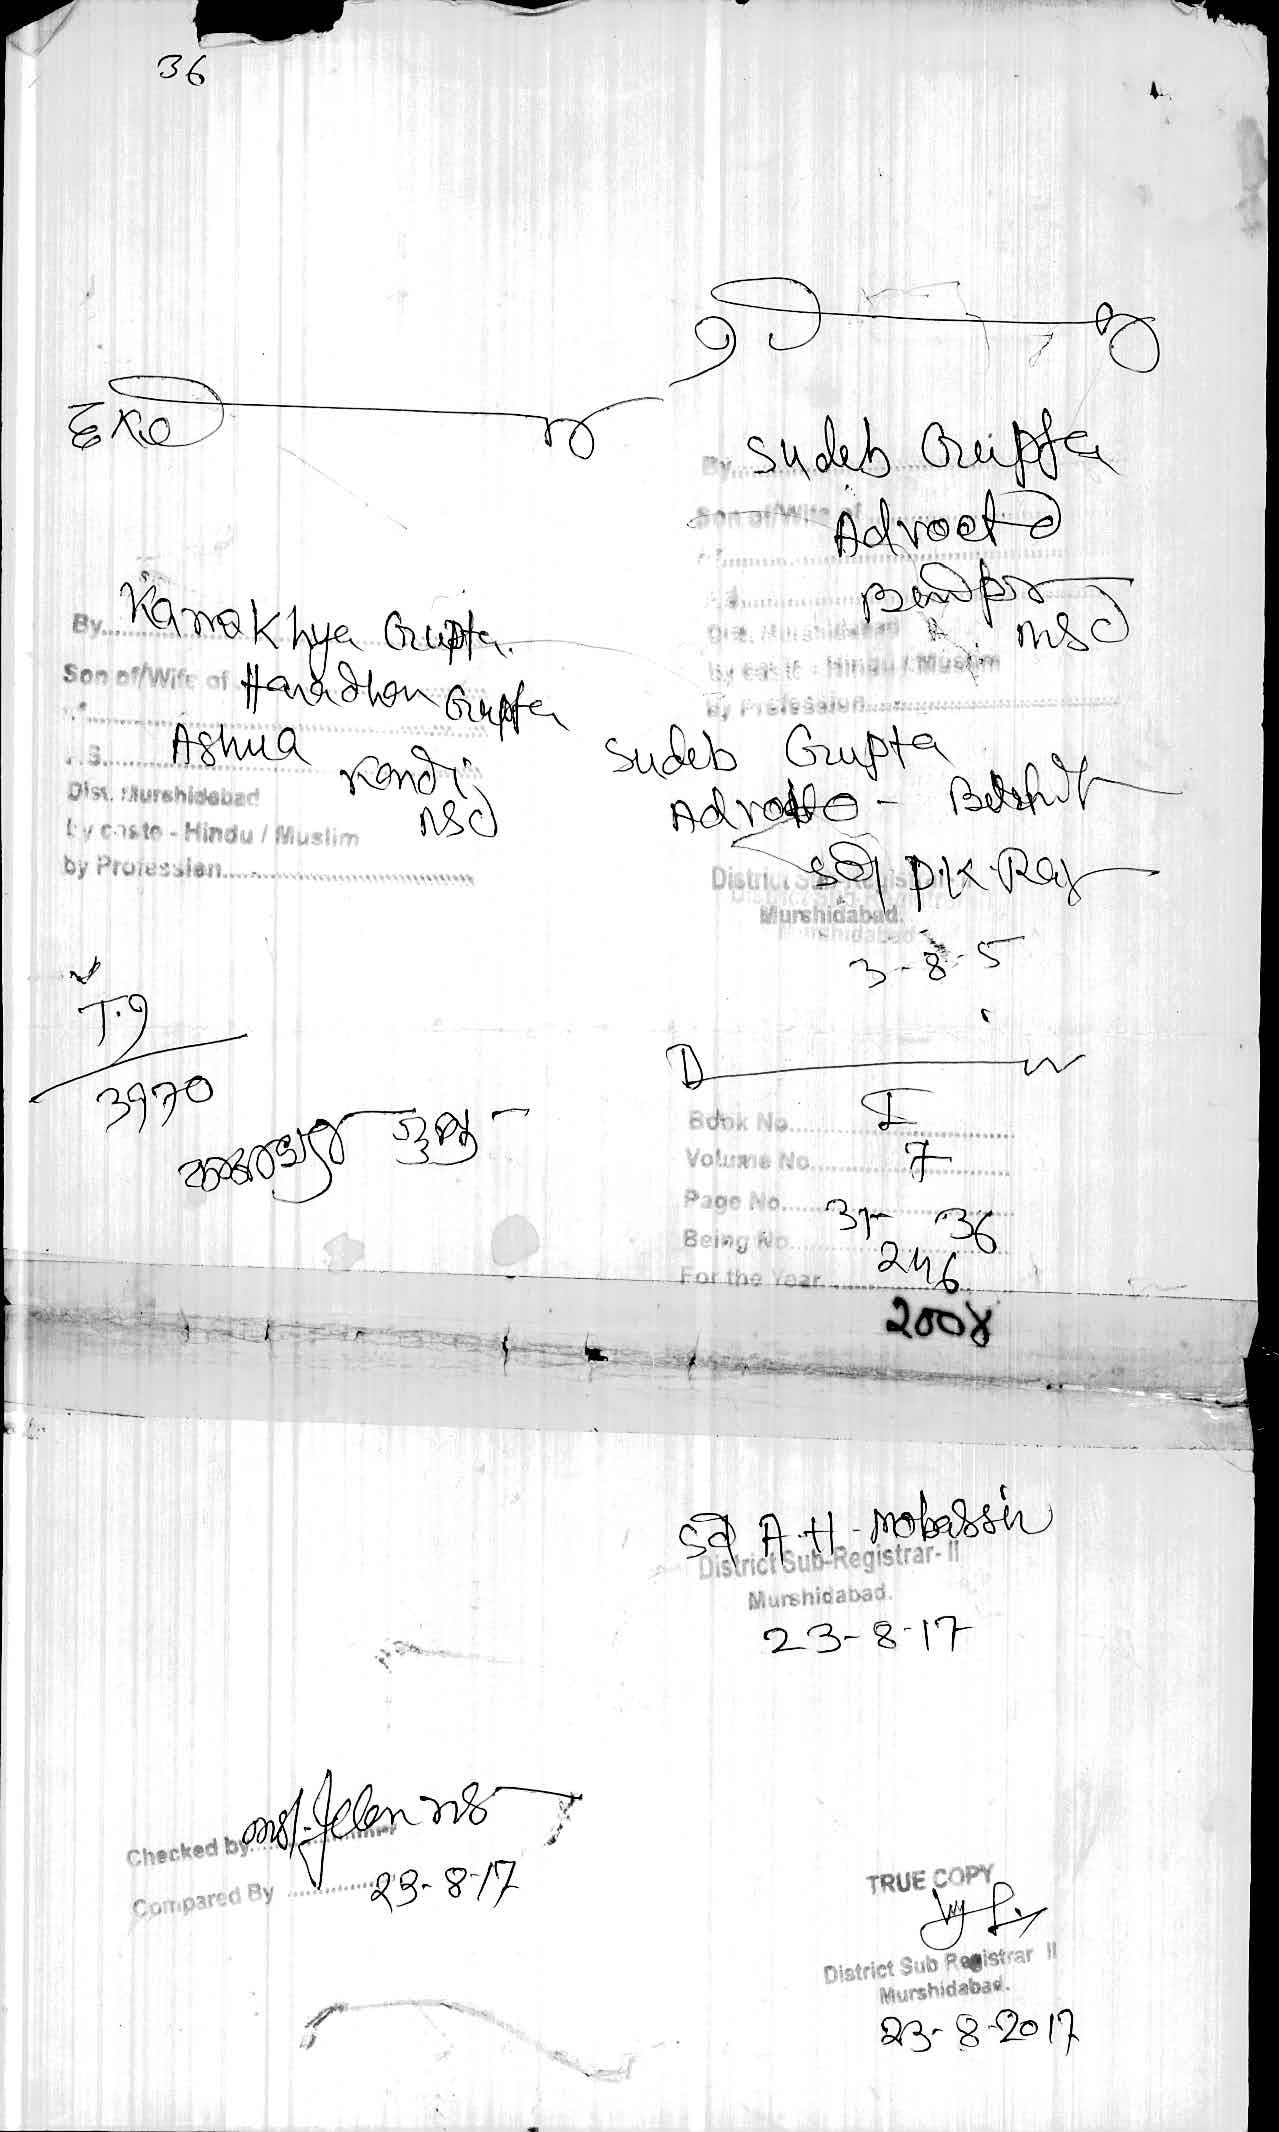 36
By Kamakhya Gupta.
Son of/Wife of Haradhan Gupta
Ashua
P.S. Kandi
Dist. Murshidabad MSD
by caste - Hindu / Muslim
by Profession
T.I
3970
কামাখ্যা গুপ্ত
By Sudeb Gupta
Son of/Wife of
Advocate
MSD
Dist. Murshidabad
by caste - Hindu / Muslim
by Profession
Sudeb Gupta
Advocate -
Sd/ D.K. Ray
District Sub-Registrar
Murshidabad.
3-8-5
Book No. I
Volume No. 7
Page No. 31- 36
Being No. 246
For the Year
2004
Sd A.H. Mobassir
District Sub-Registrar- II
Murshidabad.
23-8-17
Checked by
Compared By 23-8-17
TRUE COPY
District Sub Registrar II
Murshidabad.
23-8-2017